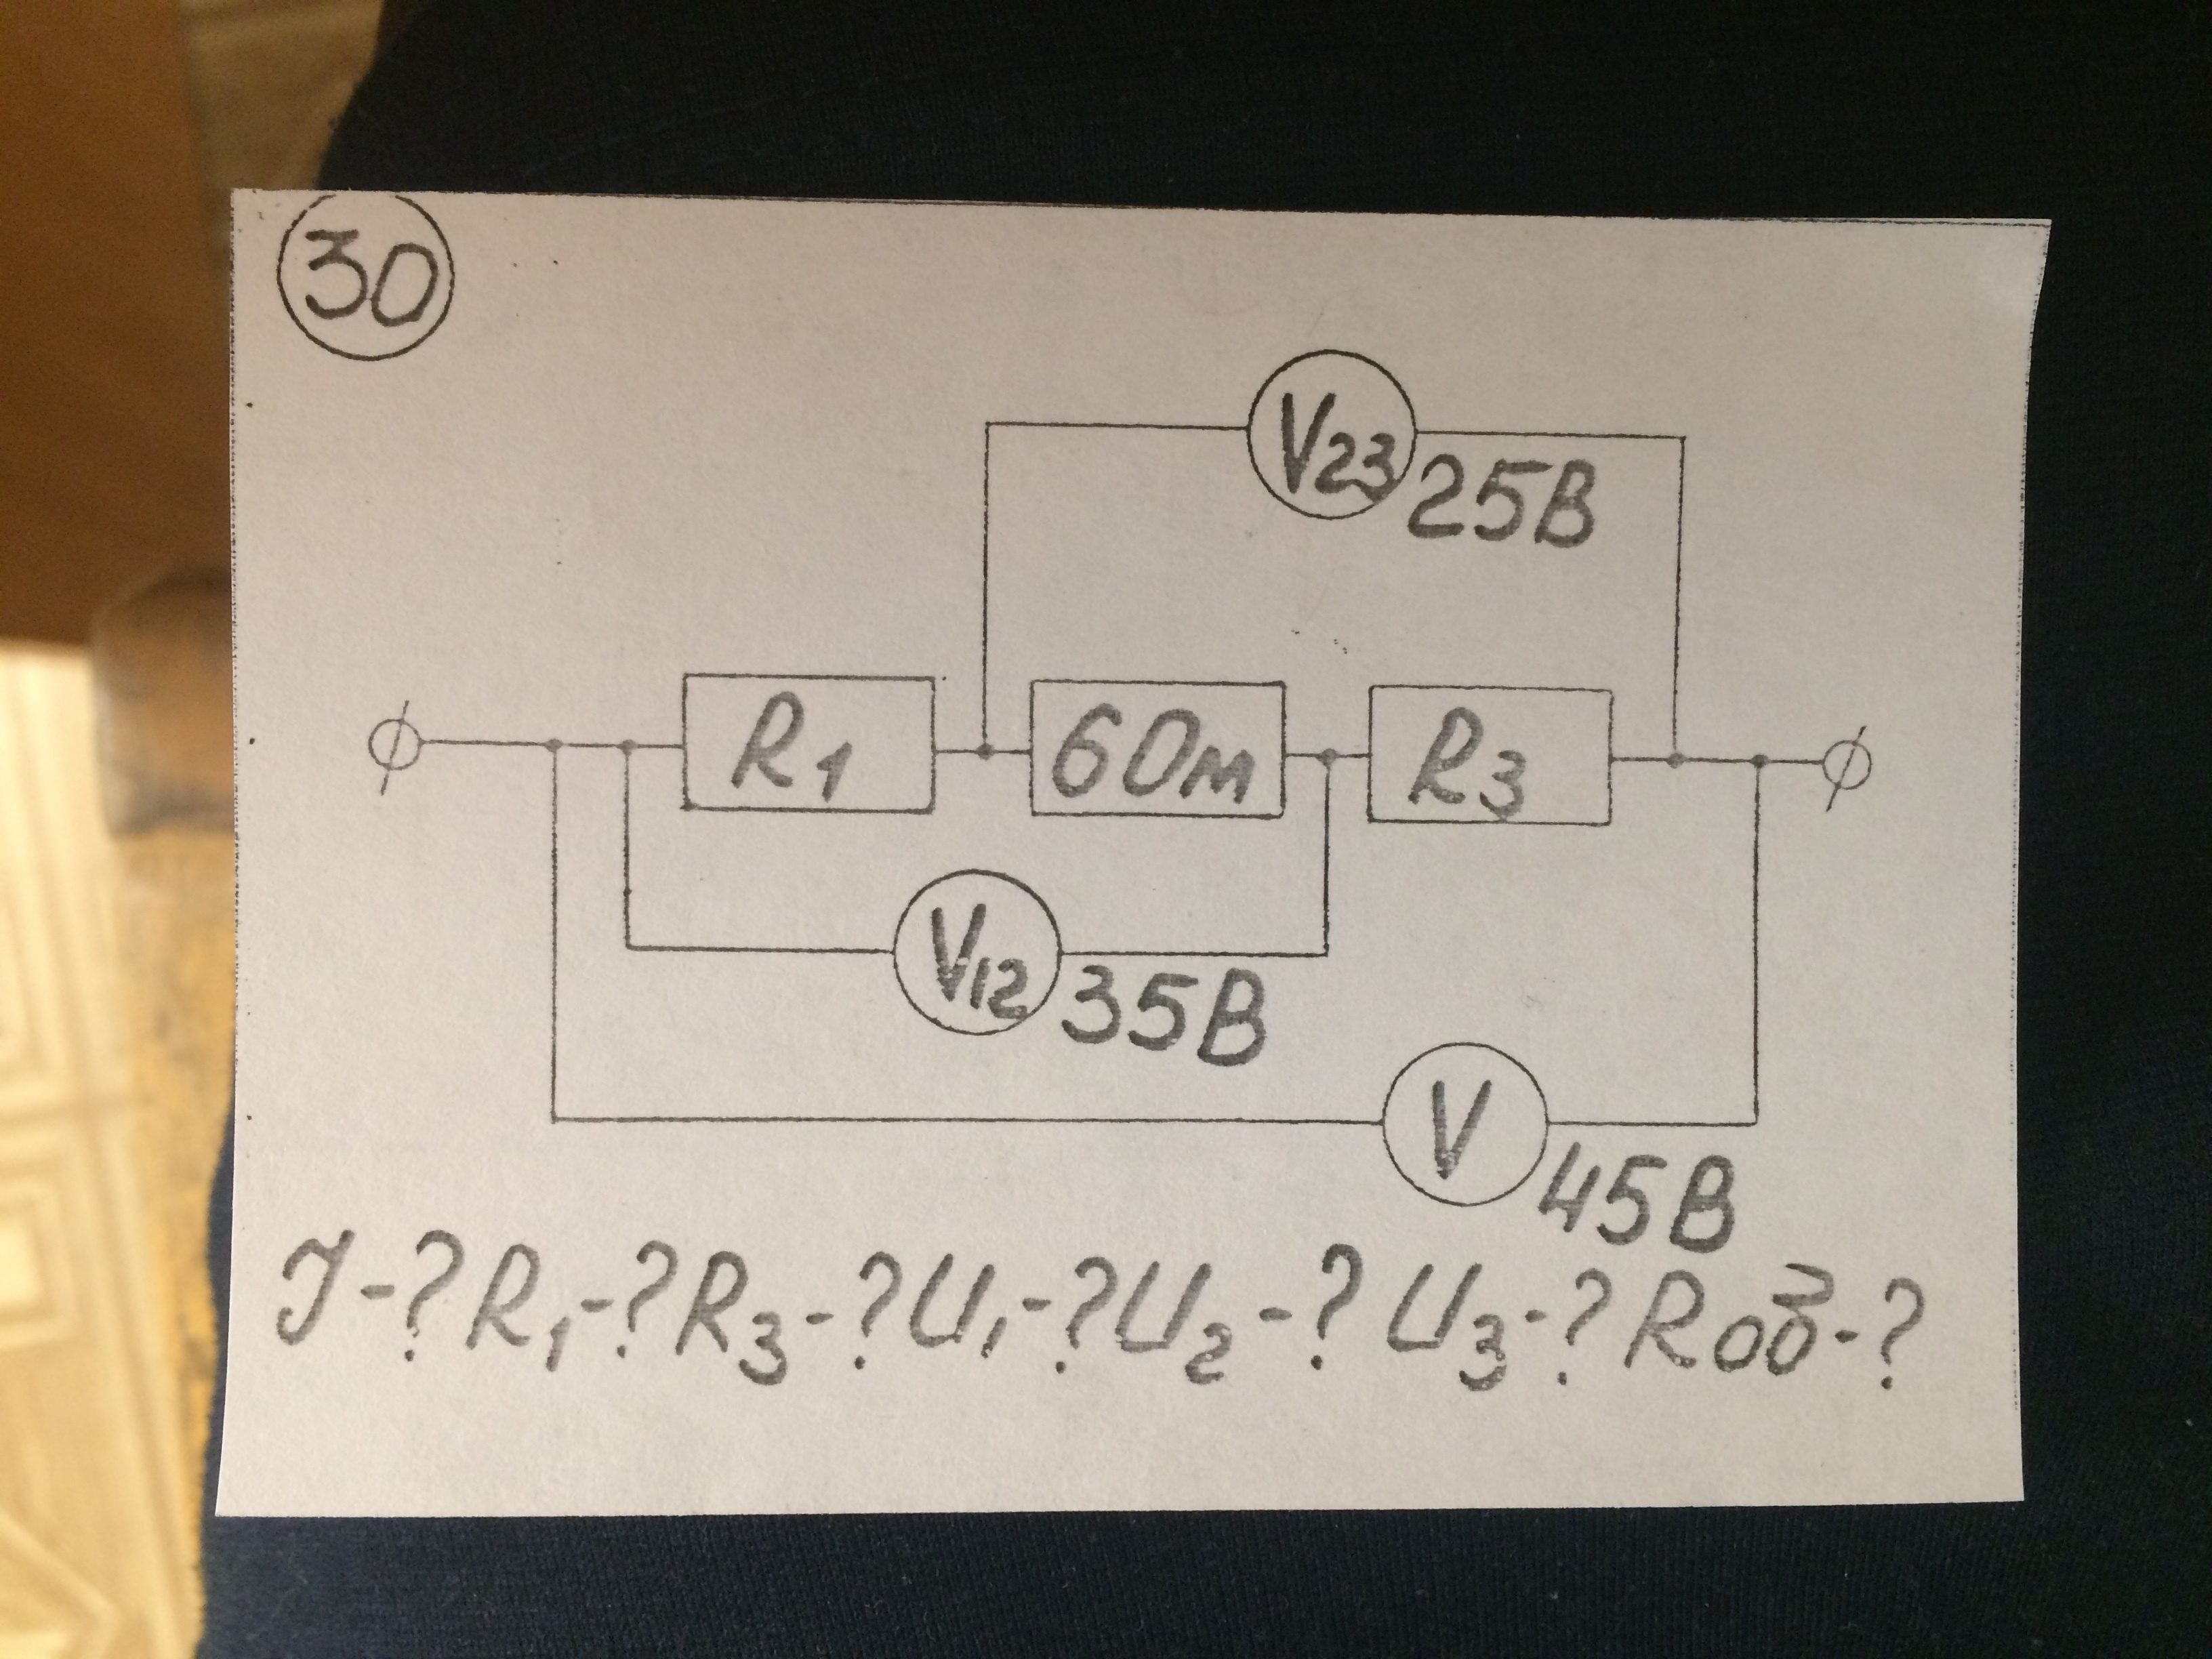 30
V23 25В
R1 6Ом R3
V12 35В
V 45В
J-? R1-? R3-? U1-? U2-? U3-? Rоб-?